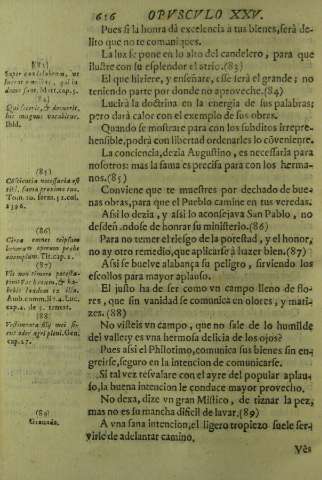 616 OPVSCVLO XXV.
Pues si la honra dà excelencia a tus bienes, serà de-
lito que no te comuniques.
La luz se pone en lo alto del candelero, para que
ilustre con su esplendor el atrio. (83)
El que hiziere, y enseñare, esse serà el grande; no
teniendo parte por donde no aproveche. (84)
Lucirà la doctrina en la energia de sus palabras;
pero darà calor con el exemplo de sus obras.
Quando se mostrare para con los subditos irrepre-
hensible, podrà con libertad ordenarles lo cõveniente.
La conciencia, dezia Augustino, es necessaria para
nosotros: mas la fama es precisa para con los herma-
nos. (85)
Conviene que te muestres por dechado de bue-
nas obras, para que el Pueblo camine en tus veredas.
Assi lo dezia, y assi lo aconsejava San Pablo, no
desdeñandose de honrar su ministerio. (86)
Para no temer el riesgo de la potestad, y el honor,
no ay otro remedio, que aplicarse à hazer bien. (87)
Assi se buelve alabança su peligro, sirviendo los
escollos para mayor aplauso.
El justo ha de ser como vn campo lleno de flo-
res, que sin vanidad se comunica en olores, y mati-
zes. (88)
No visteis vn campo, que no sale de lo humilde
del valle, y es vna hermosa delicia de los ojos?
Pues assi el Philotimo, comunica sus bienes sin en-
greirse, seguro en la intencion de comunicarse.
Si tal vez resvalare con el ayre del popular aplau-
so, la buena intencion le conduce mayor provecho.
No dexa, dize vn gran Mistico, de tiznar la pez,
mas no es su mancha dificil de lavar. (89)
A vna sana intencion, el ligero tropiezo suele ser-
virle de adelantar camino.
Vès
(83)
Super candelabrum, ut
luceat omnibus, qui in
domo sunt. Matt. cap. 5.
(84)
Qui fecerit, & docuerit,
hic magnus vocabitur.
Ibid.
(85)
Tom. 10. serm. 52. col.
(86)
Circa omnes teipsum
bonorum operum præbe
exemplum. Tit. cap. 2.
(87)
Vis non timere potesta-
tem? fac bonum, & ha-
bebis laudem ex illa.
(88)
(89)